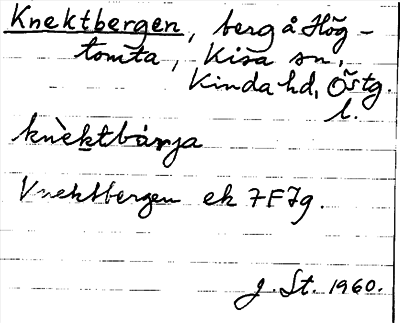 Knektbergen, berg å Hög-
tomta, Kisa sn,
Kinda hd, Östg.
l.
knὲktbárja
Knektbergen ek 7F7g.
J. St. 1960.